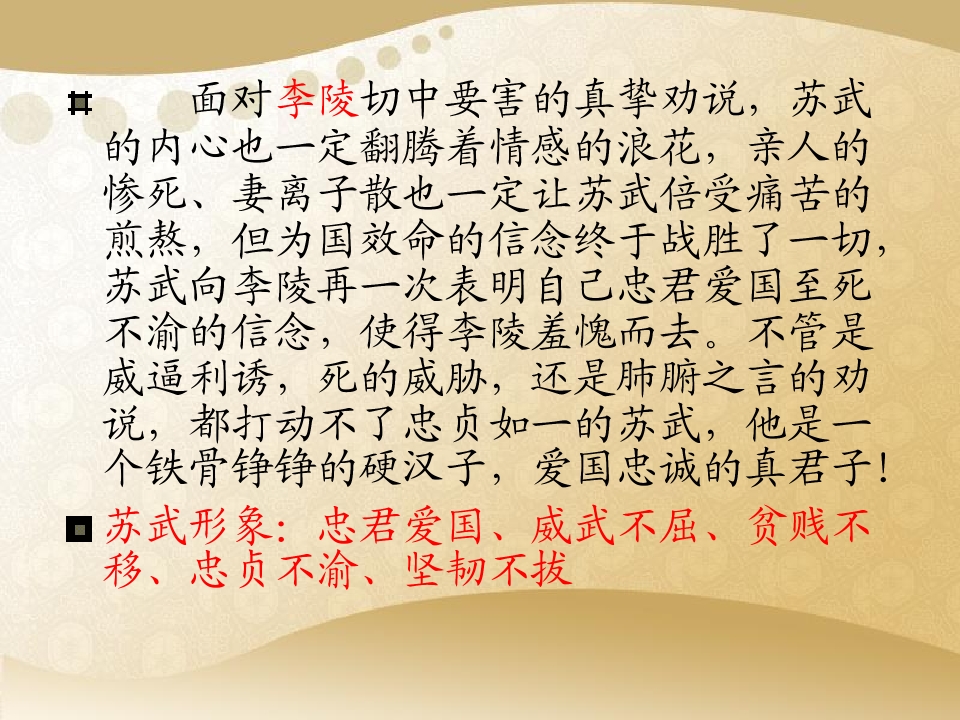 面对李陵切中要害的真挚劝说，苏武
的内心也一定翻腾着情感的浪花，亲人的
惨死、妻离子散也一定让苏武倍受痛苦的
煎熬，但为国效命的信念终于战胜了一切，
苏武向李陵再一次表明自己忠君爱国至死
不渝的信念，使得李陵羞愧而去。不管是
威逼利诱，死的威胁，还是肺腑之言的劝
说，都打动不了忠贞如一的苏武，他是一
个铁骨铮铮的硬汉子，爱国忠诚的真君子！
苏武形象：忠君爱国、威武不屈、贫贱不
移、忠贞不渝、坚韧不拔